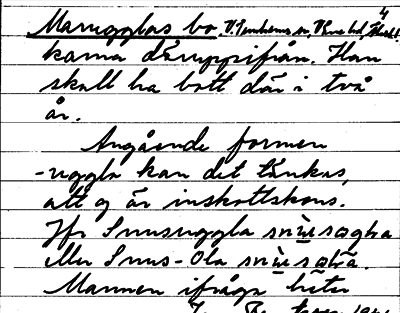 Marugglas bo, V.
karna däruppifrån. Han
skall ha bott där i två
år.
Angående formen
-uggla kan det tänkas,
att g är inskottskons.
Jfr Snusuggla snùsogla
eller Snus-Ola
Mannen ifråga heter